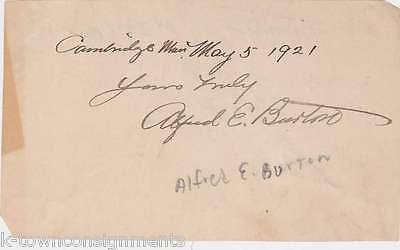 Cambridge Mass. May 5 1921
Yours truly
Alfred E. Burton
Alfred E. Burton
k-townconsignments.com